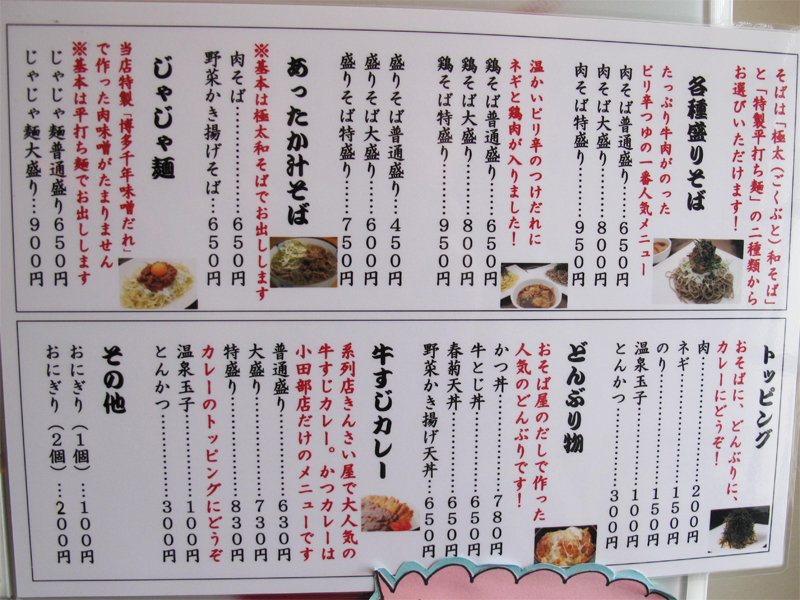 そばは「極太（ごくぶと）和そば」
と「特製平打ち麺」の二種類から
お選びいただけます！
各種盛りそば
たっぷり牛肉がのった
ピリ辛つゆの一番人気メニュー
肉そば普通盛り…650円
肉そば大盛り……800円
肉そば特盛り……950円
温かいピリ辛のつけだれに
ネギと鶏肉が入りました！
鶏そば普通盛り…650円
鶏そば大盛り……800円
鶏そば特盛り……950円
盛りそば普通盛り…450円
盛りそば大盛り……600円
盛りそば特盛り……750円
あったか汁そば
※基本は極太和そばでお出しします
肉そば……………650円
野菜かき揚げそば…650円
じゃじゃ麺
当店特製「博多千年味噌だれ」
で作った肉味噌がたまりません
※基本は平打ち麺でお出しします
じゃじゃ麺普通盛り650円
じゃじゃ麺大盛り…900円
トッピング
おそばに、どんぶりに、
カレーにどうぞ！
肉……………………200円
ネギ…………………150円
のり…………………150円
温泉玉子……………100円
とんかつ……………300円
どんぶり物
おそば屋のだしで作った
人気のどんぶりです！
かつ丼……………780円
牛とじ丼…………650円
春菊天丼…………650円
野菜かき揚げ天丼…650円
牛すじカレー
系列店きんさい屋で大人気の
牛すじカレー。かつカレーは
小田部店だけのメニューです
普通盛り…………630円
大盛り……………730円
特盛り……………830円
カレーのトッピングにどうぞ
温泉玉子…………100円
とんかつ…………300円
その他
おにぎり（1個）…100円
おにぎり（2個）…200円